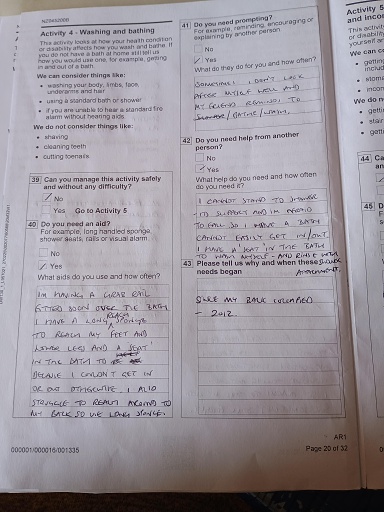 Activity 4 - Washing and bathing
This activity looks at how your health condition
or disability affects how you wash and bathe. If
you do not have a bath at home still tell us
how you would use one, for example, getting
in and out of a bath.
We can consider things like:
• washing your body, limbs, face,
underarms and hair
• using a standard bath or shower
• if you are unable to hear a standard fire
alarm without hearing aids
We do not consider things like:
• shaving
• cleaning teeth
• cutting toenails
39 Can you manage this safely
and without any difficulty?
✓ No
Yes Go to Activity 5
40 Do you need an aid?
For example, long handled sponge,
shower seats, rails or visual alarm.
No
✓ Yes
What aids do you use and how often?
IM HAVING A GRAB RAIL
FITTED SOON OVER THE BATH
I HAVE A LONG REACH SPONGE
TO REACH MY FEET AND
LOWER LEGS AND A SEAT
IN THE BATH TO
BECAUSE I COULDN'T GET IN
OR OUT OTHERWISE. I ALSO
STRUGGLE TO REACH AROUND TO
MY BACK SO USE LONG SPONGE.
41 Do you need prompting?
For example, reminding, encouraging or
explaining by another person
No
✓ Yes
What do they do for you and how often?
SOMETIMES I DON'T LOOK
AFTER MYSELF WELL AND
MY FRIEND REMINDS TO
SHOWER / BATHE / WASH.
42 Do you need help from another
person?
No
✓ Yes
What help do you need and how often
do you need it?
I CANNOT STAND TO SHOWER
TO SUPPORT AND IM AFRAID
TO FALL SO I HAVE A BATH
CANNOT EASILY GET IN/OUT
I HAVE A SEAT IN THE BATH
TO WASH MYSELF - AND RINSE WITH
SHOWER
ATTACHMENT.
43 Please tell us why and when these
needs began
SINCE MY BACK COLLAPSED
- 2012.
AR1
000001/000016/001335
Page 20 of 32
Activity 5
44
45